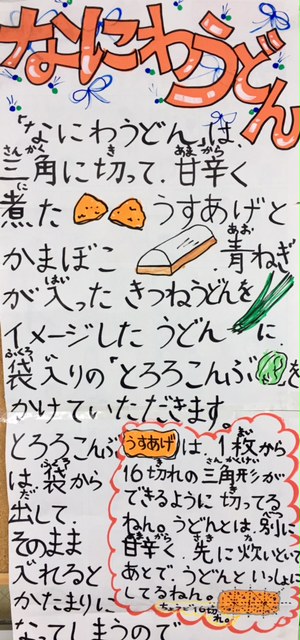 なにわうどん
「なにわうどん」は、
三角に切って、甘辛く
煮た うすあげと
かまぼこ 、青ねぎ
が入った きつねうどんを
イメージした うどん に
袋入りの「とろろこんぶ」を
かけていただきます。
とろろこんぶ
は袋から
出して、
そのまま
入れると
かたまりに
なってしまうので
うすあげは1枚から
16切れの三角形が
できるように切ってる
ねん。うどんとは別に
甘辛く、先に炊いといて
あとで、うどんといっしょに
してるねん。
ちょうど16切れ。